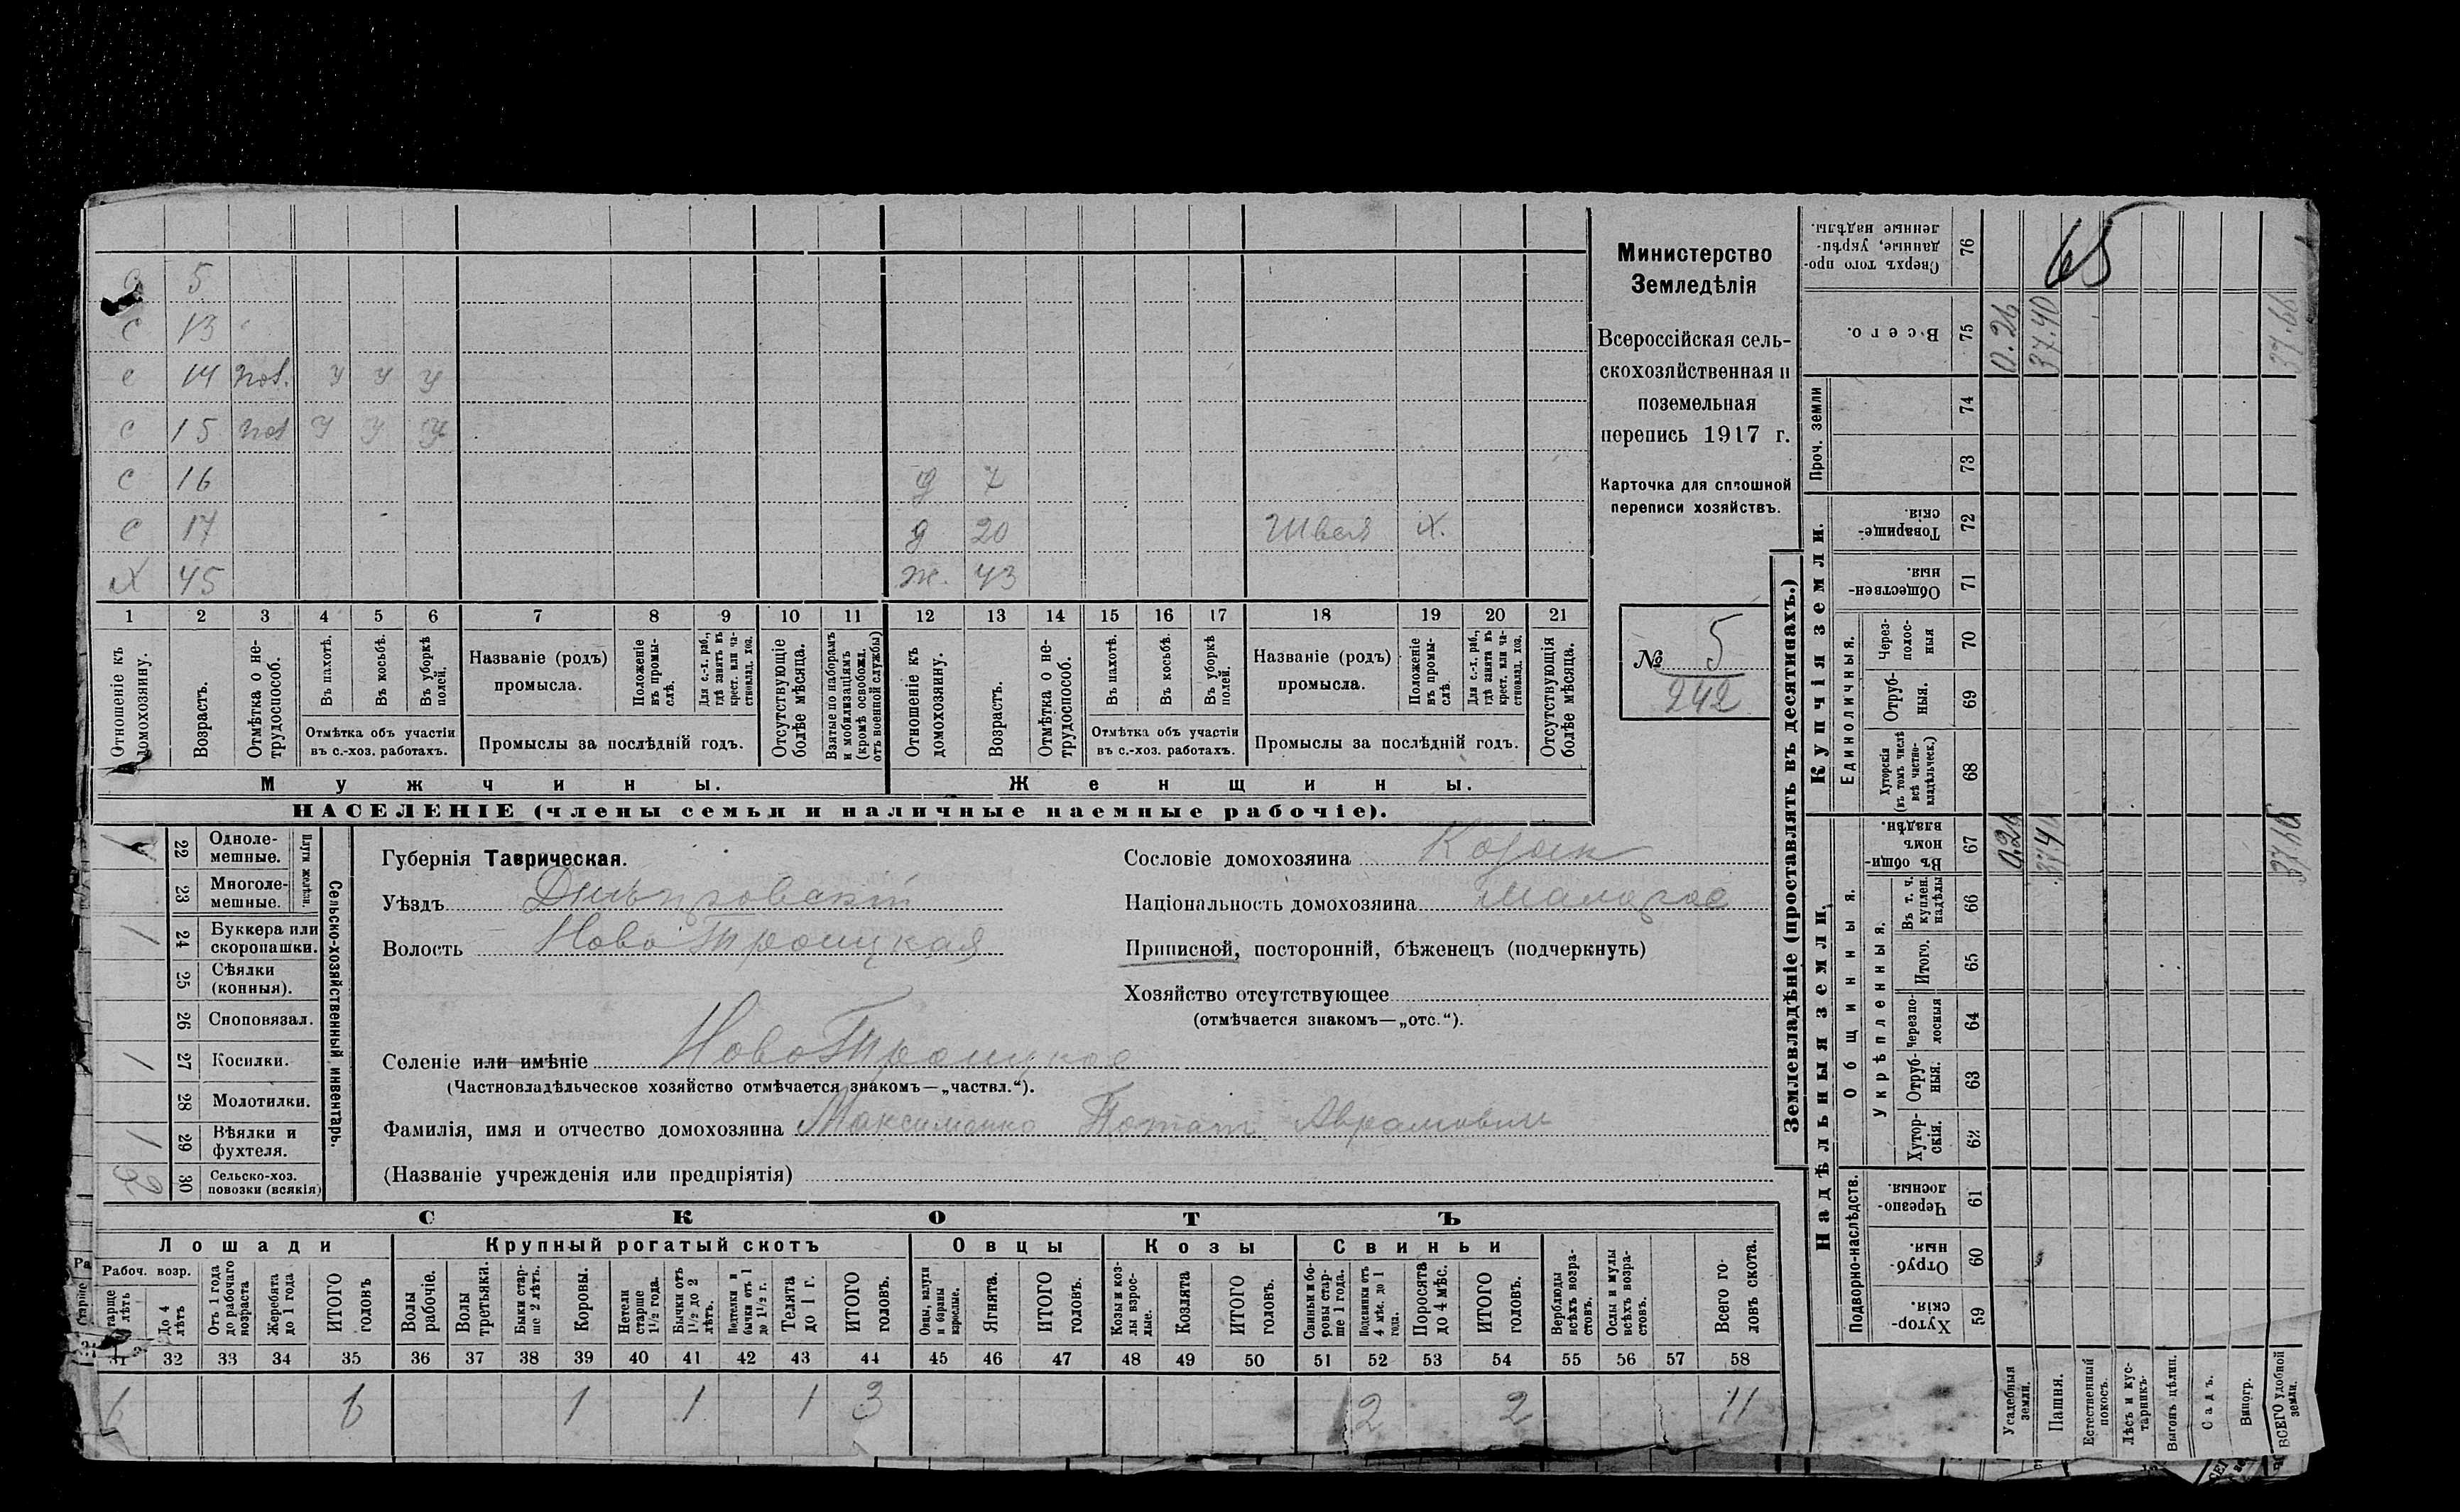 д 5
с 13
с 14 пол. у у у
с 15 пол у у у
с 16 д 7
с 17 д 20 Швея х.
х 45 ж. 43
1 2 3 4 5 6 7 8 9 10 11 12 13 14 15 16 17 18 19 20 21
Отношеніе къ домохозяину.
Возрастъ.
Отмѣтка о не-
трудоспособ.
Въ пахотѣ.
Въ косьбѣ.
Въ уборкѣ полей.
Отмѣтка объ участіи
въ с.-хоз. работахъ.
Названіе (родъ)
промысла.
Положеніе въ промы-
слѣ.
Для с.-х. раб.,
гдѣ занятъ въ
крест. или ча-
стновлад. хоз.
Промыслы за послѣдній годъ.
Отсутствующіе
болѣе мѣсяца.
Взятые по наборамъ
и мобилизаціямъ
(кромѣ освобожд.
отъ военной службы)
Отношеніе къ
домохозяину.
Возрастъ.
Отмѣтка о не-
трудоспособ.
Въ пахотѣ.
Въ косьбѣ.
Въ уборкѣ
полей.
Отмѣтка объ участіи
въ с.-хоз. работахъ.
Названіе (родъ)
промысла.
Положеніе
въ промы-
слѣ.
Для с.-х. раб.,
гдѣ занята въ
крест. или ча-
стновлад. хоз.
Промыслы за послѣдній годъ.
Отсутствующія
болѣе мѣсяца.
Мужчины.
Женщины.
НАСЕЛЕНІЕ (члены семьи и наличные наемные рабочіе).
Министерство
Земледѣлія
Всероссійская сель-
скохозяйственная и
поземельная
перепись 1917 г.
Карточка для сплошной
переписи хозяйствъ.
№ 5
242
22 Одноле-
мешные.
23 Многоле-
мешные.
Плуги желѣзн.
1 24 Буккера или
скоропашки.
25 Сѣялки
(конныя).
26 Сноповязал.
1 27 Косилки.
28 Молотилки.
1 29 Вѣялки и
фухтеля.
30 Сельско-хоз.
повозки (всякія)
Сельско-хозяйственный инвентарь.
Губернія Таврическая.
Уѣздъ Днѣпровскій
Волость НовоТроицкая
Сословіе домохозяина Козак
Національность домохозяина Малорос
Приписной, посторонній, бѣженецъ (подчеркнуть)
Хозяйство отсутствующее
(отмѣчается знакомъ—„отс.“).
Селеніе или имѣніе НовоТроицкое
(Частновладѣльческое хозяйство отмѣчается знакомъ—„частвл.“).
Фамилія, имя и отчество домохозяина Максименко Потап Аврамович
(Названіе учрежденія или предпріятія)
СКОТЪ
Лошади
Крупный рогатый скотъ
Овцы
Козы
Свиньи
Рабоч. возр.
Старше 4 лѣтъ
До 4
лѣтъ
Отъ 1 года
до рабочаго
возраста
Жеребята
до 1 года
ИТОГО
головъ
Волы
рабочіе.
Волы
третьяки.
Быки стар-
ше 2 лѣтъ.
Коровы.
Нетели
старше
1½ года.
Бычки отъ
1½ до 2
лѣтъ.
Подтелки и
бычки отъ 1
до 1½ г.
Телята
до 1 г.
ИТОГО
головъ.
Овцы, валухи
и бараны
взрослые.
Ягнята.
ИТОГО
головъ.
Козы и коз-
лы взрос-
лые.
Козлята
ИТОГО
головъ.
Свиньи и бо-
ровы стар-
ше 1 года.
Подсвинки отъ
4 мѣс. до 1
года.
Поросята
до 4 мѣс.
ИТОГО
головъ.
Верблюды
всѣхъ возра-
стовъ.
Ослы и мулы
всѣхъ возра-
стовъ.
Всего го-
ловъ скота.
31 32 33 34 35 36 37 38 39 40 41 42 43 44 45 46 47 48 49 50 51 52 53 54 55 56 57 58
6 6 1 1 1 3 2 2 11
Землевладѣніе (проставлять въ десятинахъ.)
Надѣльныя земли.
Купчія земли.
Проч. земли
Подворно-наслѣдств.
Общинныя.
Укрѣпленныя.
Единоличныя.
Хутор-
скія. 59
Отруб-
ныя. 60
Черезпо-
лосныя. 61
Хутор-
скія. 62
Отруб-
ныя. 63
Черезпо-
лосныя 64
Итого. 65
Въ т. ч.
куплен.
надѣлы 66
Въ общин-
номъ
владѣн. 67
Хуторскія
(въ томъ числѣ
всѣ частно-
владѣльческ.) 68
Отруб-
ныя. 69
Через-
полос-
ныя 70
Обществен-
ныя. 71
Товарище-
скія. 72
73
74
Всего. 75
Сверхъ того про-
данные, укрѣп-
ленные надѣлы. 76
65
Усадебныя
земли. 0.26 0.26
Пашня. 37.40
Естественный
покосъ.
Лѣсъ и кус-
тарникъ.
Выгонъ цѣлин.
Садъ.
Виногр.
ВСЕГО удобной
земли. 37.66 37.66